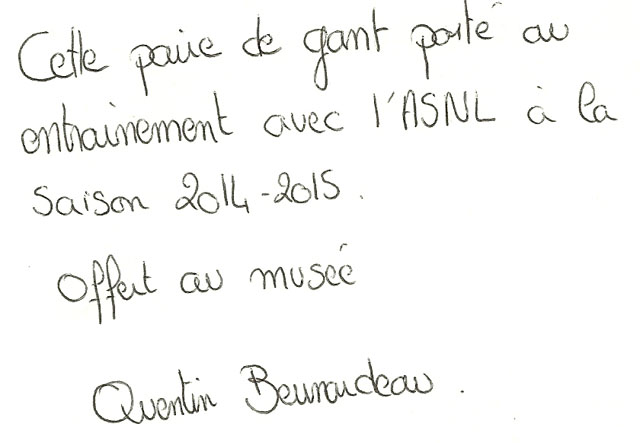 Cette paire de gant porté au
entrainement avec l'ASNL à la
saison 2014-2015.
Offert au musée
Quentin Beunardeau.